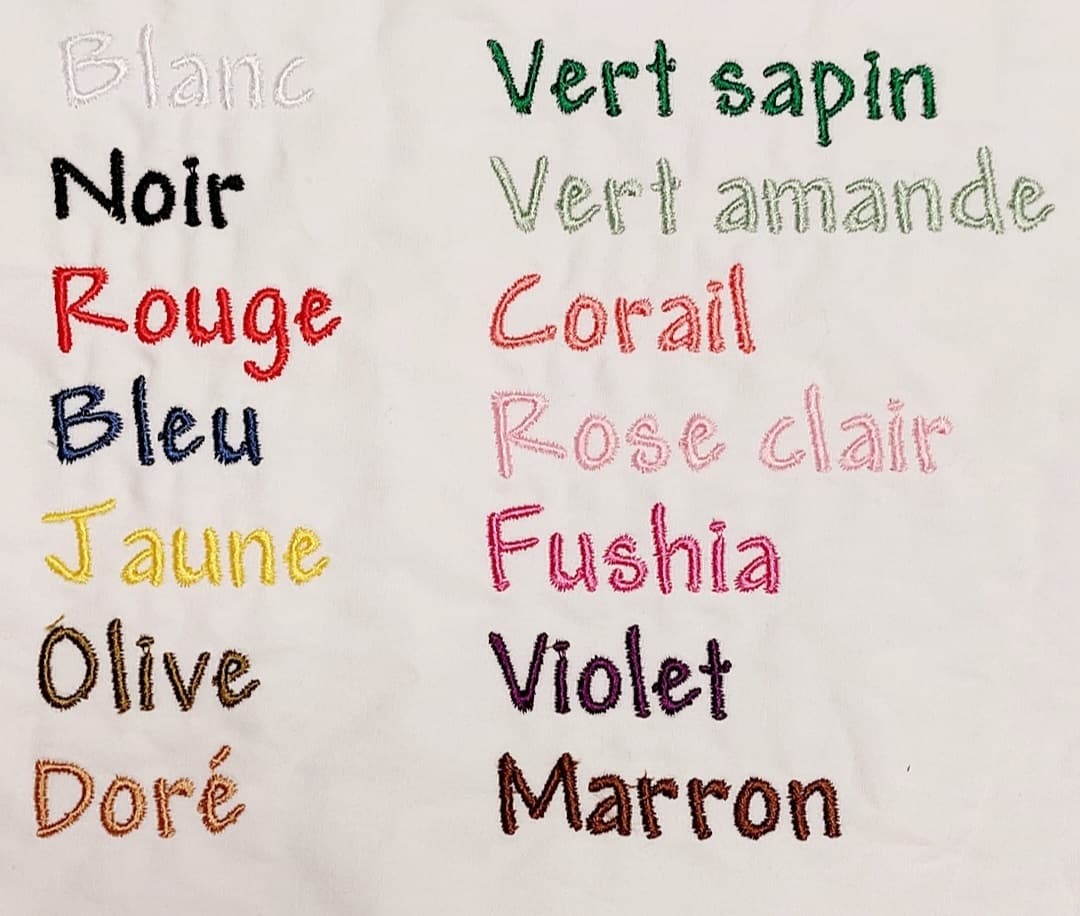 Blanc
Noir
Rouge
Bleu
Jaune
Olive
Doré
Vert sapin
Vert amande
Corail
Rose clair
Fushia
Violet
Marron